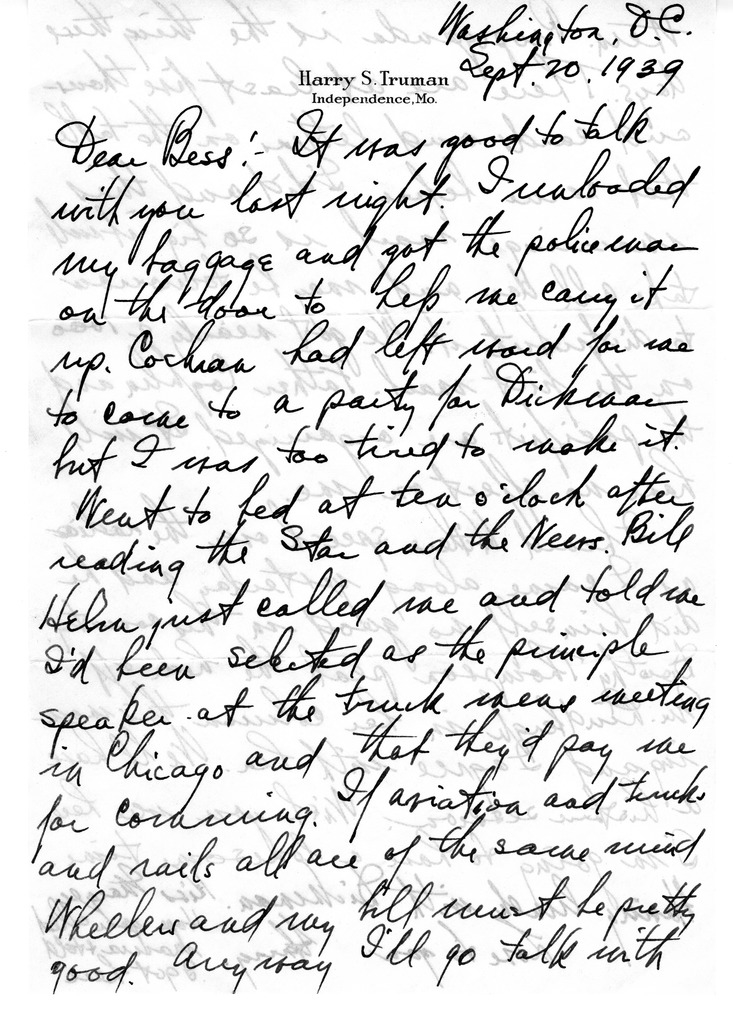 Washington, D.C.
Sept. 20, 1939
Harry S. Truman
Independence, Mo.
Dear Bess:- It was good to talk
with you last night. I unloaded
my baggage and got the policeman
on the door to help me carry it
up. Cochran had left word for me
to come to a party for Dickman
but I was too tired to make it.
Went to bed at ten o'clock after
reading the Star and the News. Bill
Helm just called me and told me
I'd been selected as the principle
speaker at the truck mens meeting
in Chicago and that they'd pay me
for comming. If aviation and trucks
and rails all are of the same mind
Wheelers and my bill must be pretty
good. Anyway I'll go talk with